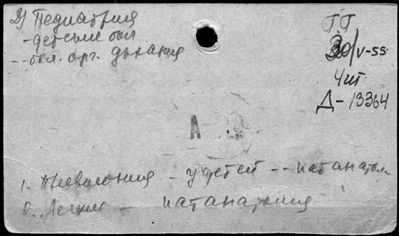 2) Педиатрия
- детские бол.
-- бол. орг. дыхания
ГГ
30/V-55
4 шт
Д-13364
А
1. Пневмония - у детей -- патанатом.
2. Легкие - патанатомия